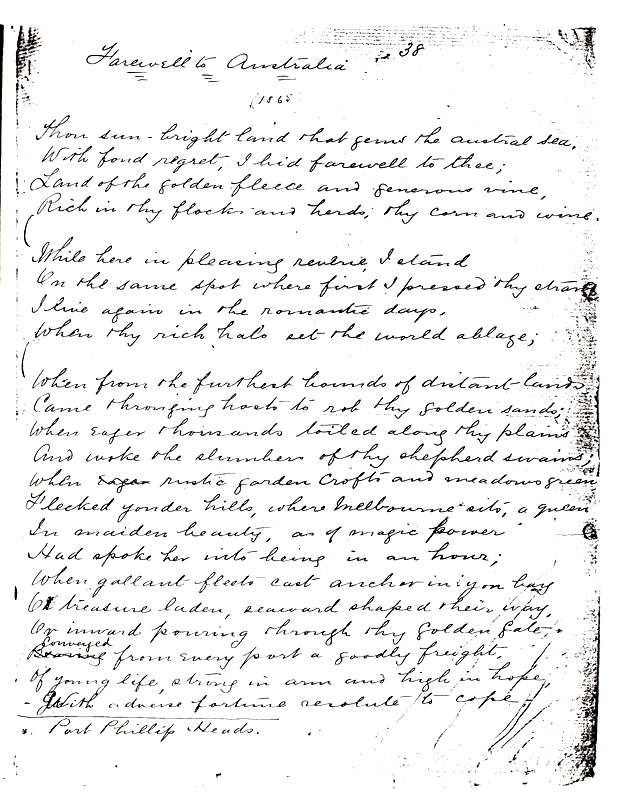 Farewell to Australia
38
(1865
Thou sun-bright land that gems the austral sea,
With fond regret, I bid farewell to thee;
Land of the golden fleece and generous vine,
Rich in thy flocks and herds, thy corn and wine.
While here in pleasing reverie, I stand
On the same spot where first I pressed thy strand
I live again in the romantic days,
When thy rich halo set the world ablaze;
When from the furthest bounds of distant lands
Came thronging hosts to rob thy golden sands;
When eager thousands toiled along thy plains
And woke the slumbers of thy shepherd swains;
When rustic garden crofts and meadows green
Flecked yonder hills, where Melbourne sits, a queen
In maiden beauty, as if magic power
Had spoke her into being in an hour;
When gallant fleets cast anchor in yon bay
Or treasure laden, seaward shaped their way,
Or inward pouring through thy Golden Gate, *
Conveyed
from every port a goodly freight,
Of young life, strong in arm and high in hope,
With adverse fortune resolute to cope -
*. Port Phillip Heads.